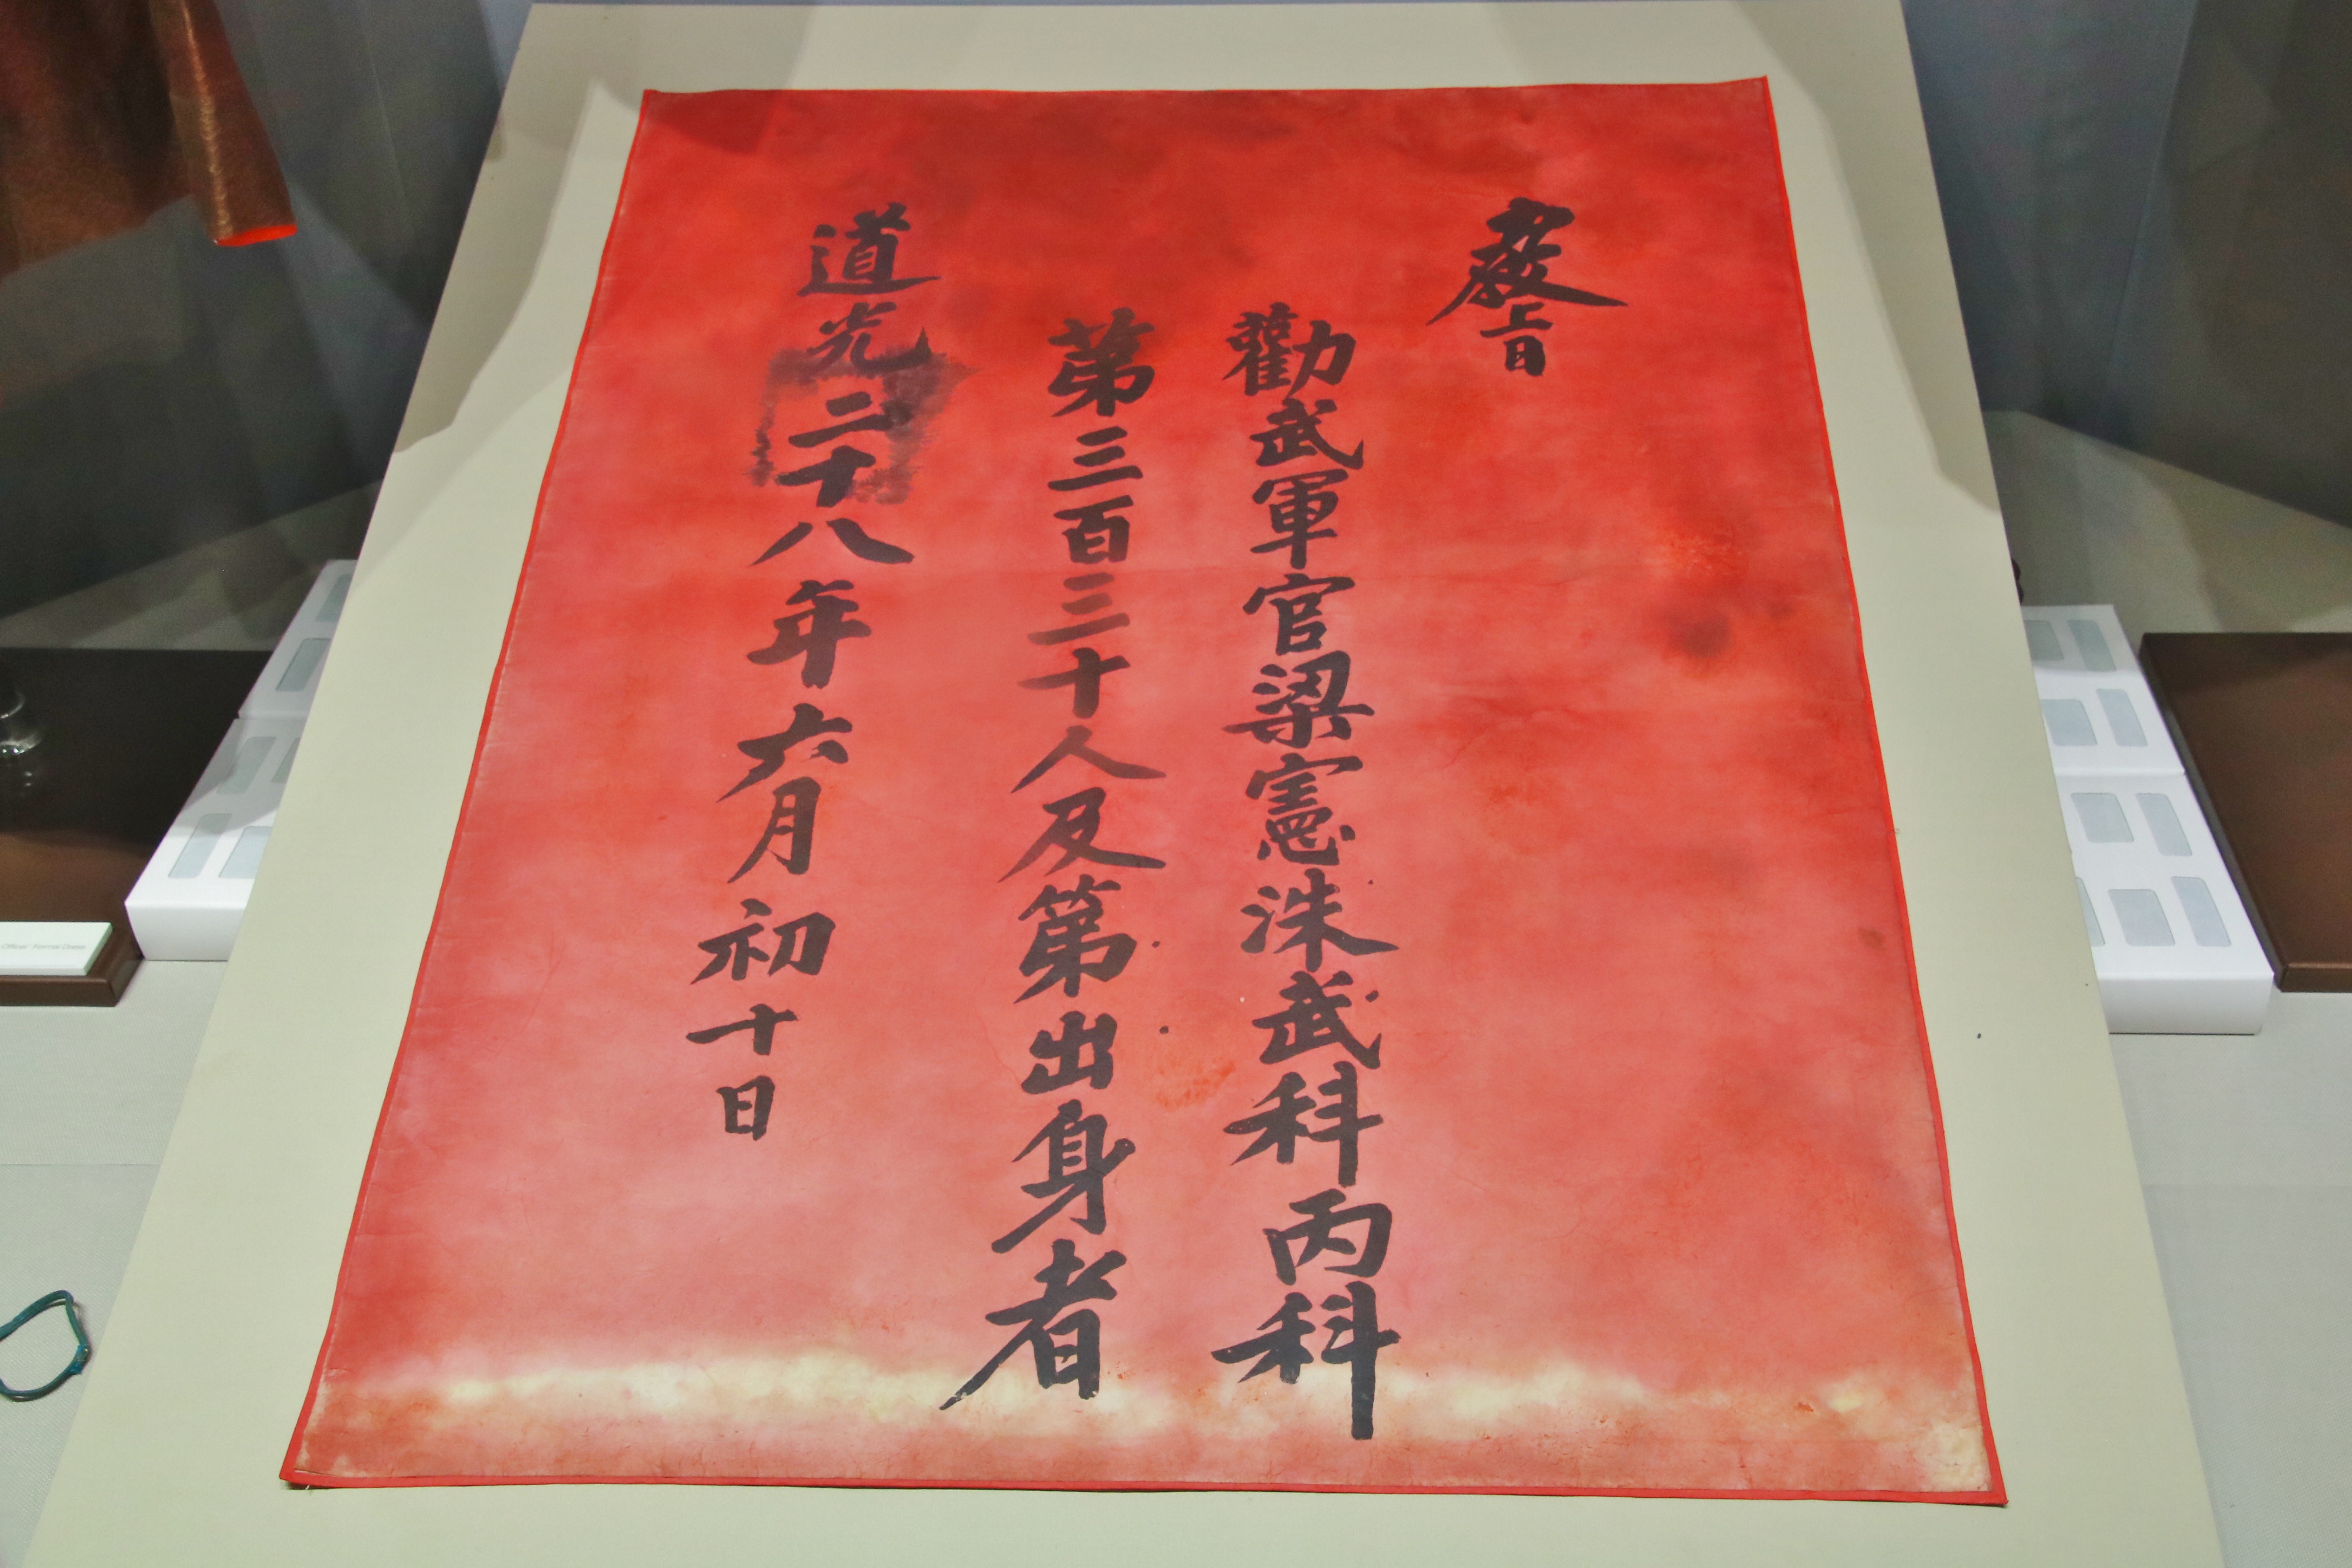 敎旨
勸武軍官梁憲洙武科丙科
第三百三十人及第出身者
道光二十八年六月初十日